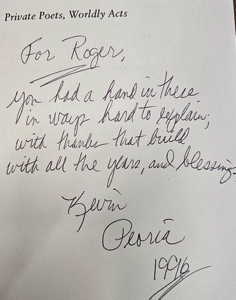 Private Poets, Worldly Acts
For Roger,
you had a hand in these
in ways hard to explain;
with thanks that build
with all the years, and blessings
Kevin
Peoria
1996